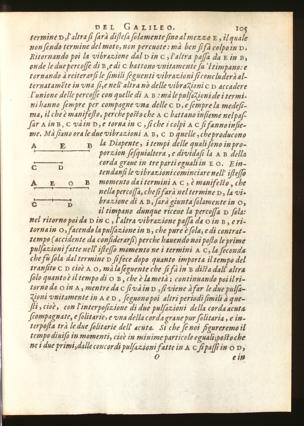 DEL GALILEO. 105
termine D, l'altra si sarà distesa solamente sino al mezzo E, il quale
non sendo termine del moto, non percuote: mà ben si fà colpo in D.
Ritornando poi la vibrazione dal D in C, l'altra passa da E in B,
onde le due percosse di B, e di C battono unitamente su 'l timpano: e
tornando à reiterarsi le simili seguenti vibrazioni si concluderà al-
ternatamente in una sì, e nell'altra nò delle vibrazioni C D accadere
l'unione delle percosse con quelle di A B: mà le pulsazioni de i termi-
ni hanno sempre per compagne una delle C D, e sempre la medesi-
ma, il che è manifesto, perche posto che A C battano insieme nel pas-
sar A in B, C và in D, e torna in C, si che i colpi A C si fanno insie-
me. Mà siano ora le due vibrazioni A B, C D quelle, che producono
la Diapente, i tempi delle quali sono in pro-
porzion sesquialtera, e dividasi la A B della
corda grave in tre parti eguali in E O. E in-
tendansi le vibrazioni cominciare nell'istesso
momento da i termini A C, è manifesto, che
nella percossa, che si farà nel termine D, la vi-
brazione di A B, sarà giunta solamente in O,
il timpano dunque riceve la percossa D sola:
A E B
C D
A E O B
C D
nel ritorno poi da D in C, l'altra vibrazione passa da O in B, e ri-
torna in O, facendo la pulsazione in B, che pure è sola, e di contrat-
tempo (accidente da considerarsi) perche havendo noi posto le prime
pulsazioni fatte nell'istesso momento ne i termini A C, la seconda
che fù sola del termine D si fece dopo quanto importa il tempo del
transito C D cioè A O, mà la seguente che si fà in B dista dall'altra
solo quanto è 'l tempo di O B, che è la metà: continuando poi il ri-
torno da O in A, mentre da C si và in D, si viene à far le due pulsa-
zioni unitamente in A e D, seguono poi altri periodi simili à que-
sti, cioè, con l'interposizione di due pulsazioni della corda acuta
scompagnate, e solitarie, e una della corda grave pur solitaria, e in-
terposta trà le due solitarie dell'acuta. Si che se noi figureremo il
tempo diviso in momenti, cioè in minime particole eguali: posto che
ne i due primi, dalle concordi pulsazioni fatte in A C si passi in O D,
O e in